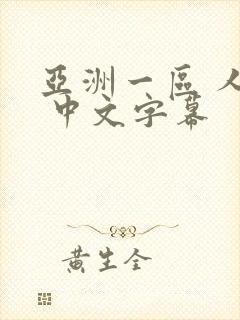 亞洲一區人
中文字幕
黃生全